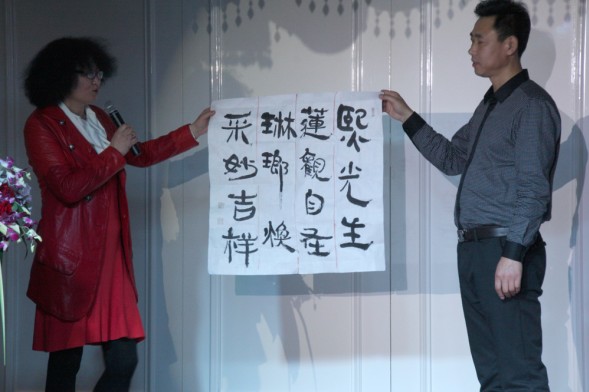 熙光生
蓮觀自在
琳瑯煥
采妙吉祥